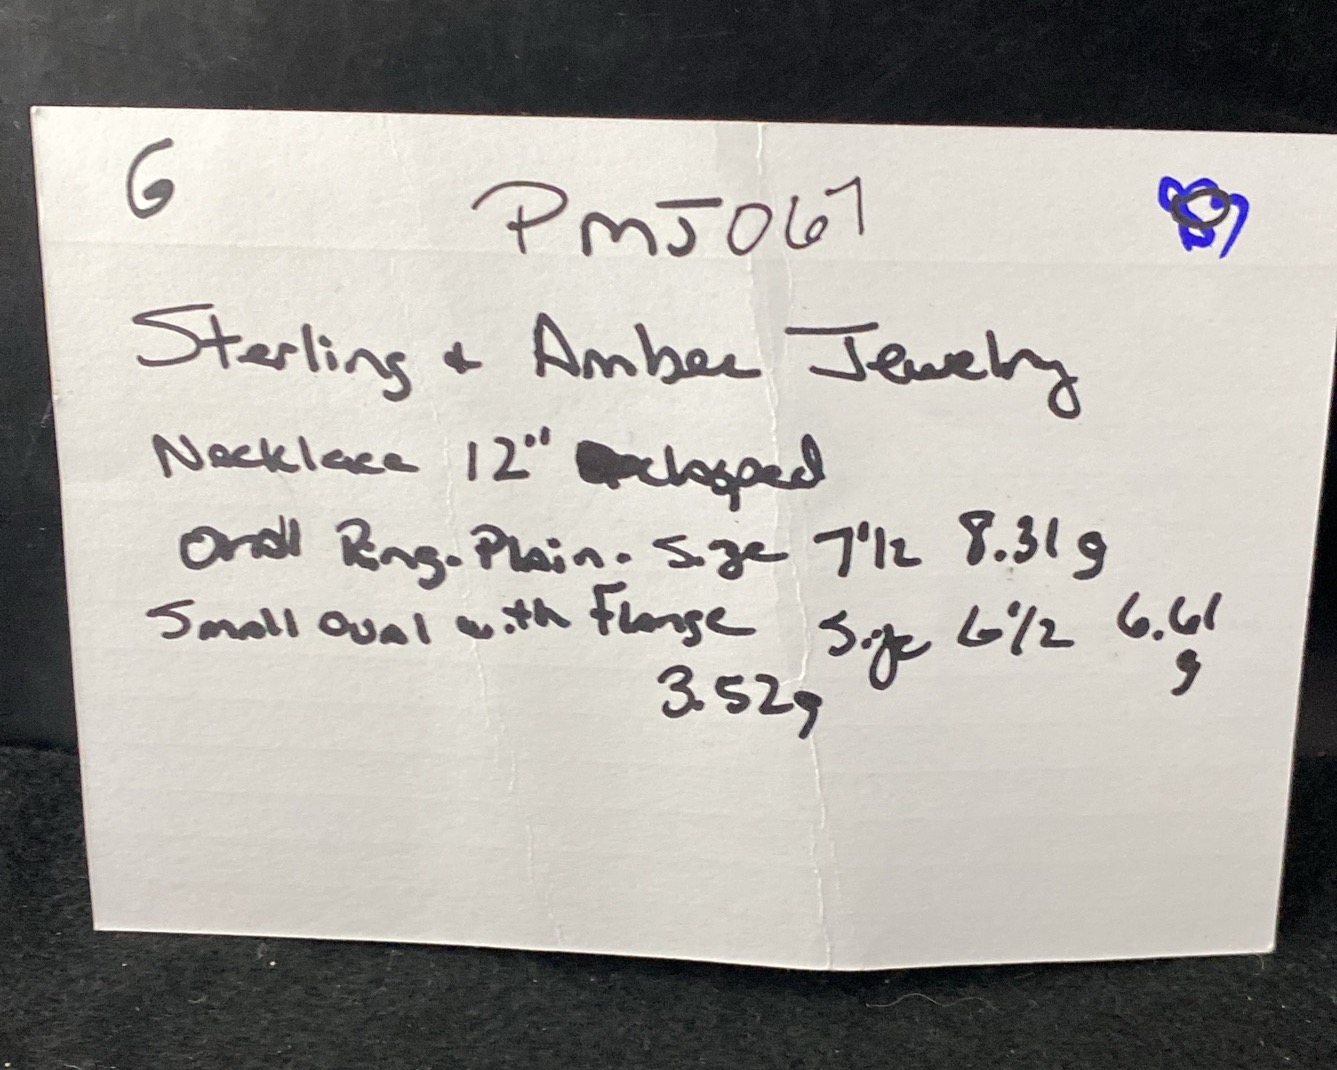 G PMJ067
Sterling + Amber Jewelry
Necklace 12" clasped
Oval Ring. Plain. Size 7 1/2 8.31g
Small oval with Flange Size 6 1/2 6.61 g
3.52g